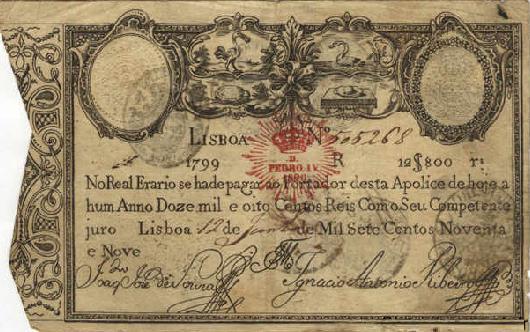 LISBOA Nº 505268
1799 R 12$800 rs
D.
PEDRO IV
1826
No Real Erario se hade pagar ao Portador desta Apolice de hoje a
hum Anno Doze mil e oito Centos Reis Com o Seu Competente
juro Lisboa 12 de de Mil Sete Centos Noventa
e Nove
Joaq Joze de Souza Ignacio Antonio Ribeiro